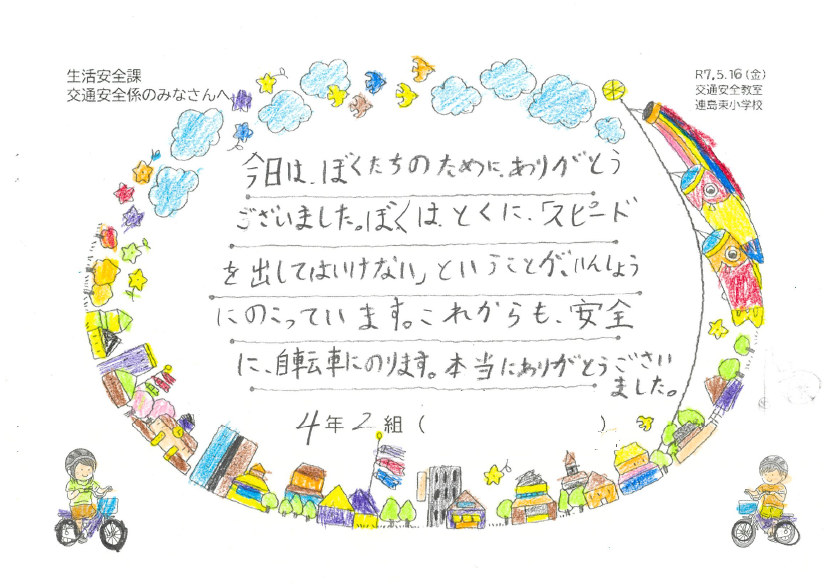 生活安全課
交通安全係のみなさんへ
R7.5.16(金)
交通安全教室
連島東小学校
今日は、ぼくたちのために、ありがとう
ございました。ぼくは、とくに、「スピード
を出してはいけない」ということが、いんしょう
にのこっています。これからも、安全
に、自転車にのります。本当にありがとうござい
ました。
4年2組( )